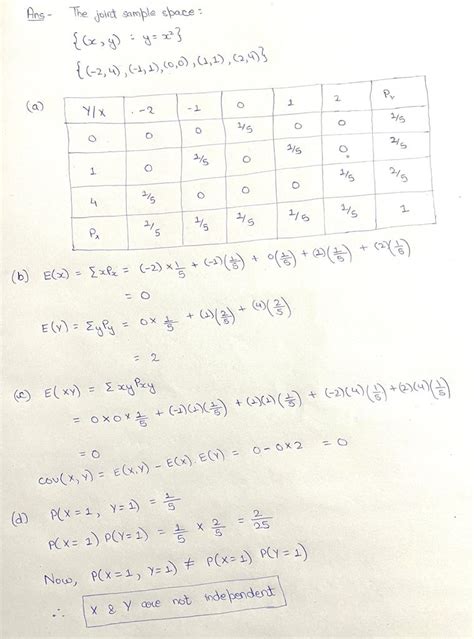 Ans - The joint sample space:
{(x, y) : y = x²}
{(-2,4), (-1,1), (0,0), (1,1), (2,4)}
(a)
Y/X -2 -1 0 1 2 Py
0 0 0 1/5 0 0 1/5
1 0 1/5 0 1/5 0 2/5
4 1/5 0 0 0 1/5 2/5
Px 1/5 1/5 1/5 1/5 1/5 1
(b) E(x) = Σxpx = (-2) × 1/5 + (-1)(1/5) + 0(1/5) + (1)(1/5) + (2)(1/5)
= 0
E(Y) = Σypy = 0 × 1/5 + (1)(2/5) + (4)(2/5)
= 2
(c) E(XY) = Σxypxy
= 0×0×1/5 + (-1)(1)(1/5) + (1)(1)(1/5) + (-2)(4)(1/5) + (2)(4)(1/5)
= 0
cov(X,Y) = E(X,Y) - E(X).E(Y) = 0 - 0×2 = 0
(d) P(X=1, Y=1) = 1/5
P(X=1) P(Y=1) = 1/5 × 2/5 = 2/25
Now, P(X=1, Y=1) ≠ P(X=1) P(Y=1)
∴ X & Y are not independent